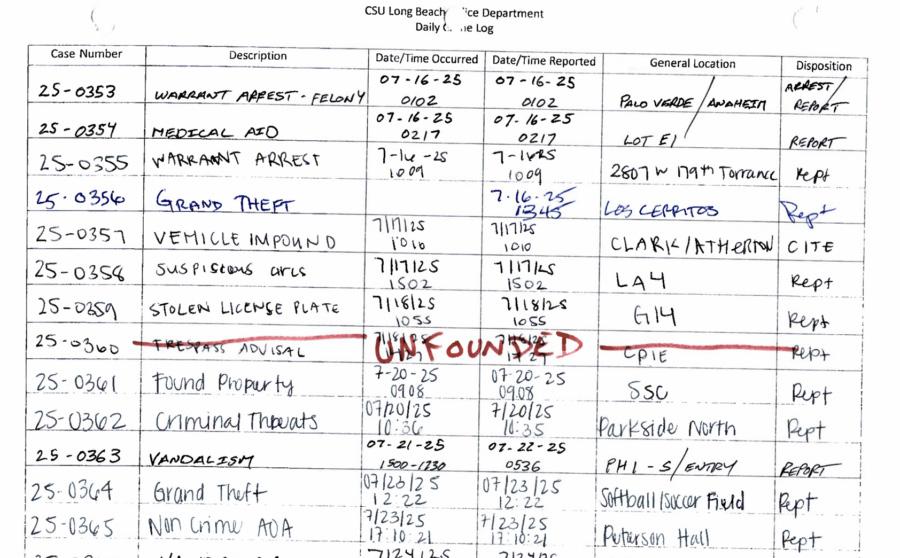 CSU Long Beach Police Department
Daily Crime Log
Case Number Description Date/Time Occurred Date/Time Reported General Location Disposition
25-0353 WARRANT ARREST - FELONY 07-16-25 0102 07-16-25 0102 PALO VERDE/ANAHEIM ARREST/REPORT
25-0354 MEDICAL AID 07-16-25 0217 07-16-25 0217 LOT E1 REPORT
25-0355 WARRANT ARREST 7-16-25 1009 7-1625 1009 2807 W 179th Torrance Rept
25-0356 GRAND THEFT 7-16-25 1345 LOS CERRITOS Rept
25-0357 VEHICLE IMPOUND 7/17/25 1010 7/17/25 1010 CLARK/ATHERTON CITE
25-0358 SUSPISCOUS CIRCS 7/17/25 1502 7/17/25 1502 LA4 Rept
25-0359 STOLEN LICENSE PLATE 7/18/25 1055 7/18/25 1055 G14 Rept
25-0360 TRESPASS ADVISAL UNFOUNDED CPIE Rept
25-0361 Found Property 7-20-25 0908 07-20-25 0908 SSC Rept
25-0362 Criminal Threats 07/20/25 10:36 7/20/25 10:35 Parkside North Rept
25-0363 VANDALISM 07-21-25 1500-1730 07-22-25 0536 PH1-S/ENTRY REPORT
25-0364 Grand Theft 07/23/25 12:22 07/23/25 12:22 Softball/Soccer Field Rept
25-0365 Non Crime AOA 7/23/25 17:10:21 7/23/25 17:10:21 Peterson Hall Rept